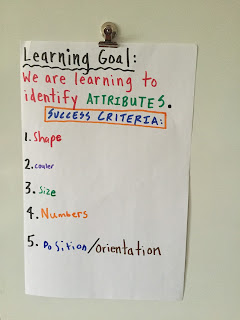 Learning Goal:
We are learning to
identify ATTRIBUTES.
SUCCESS CRITERIA:
1. Shape
2. couler
3. Size
4. Numbers
5. Position/orientation